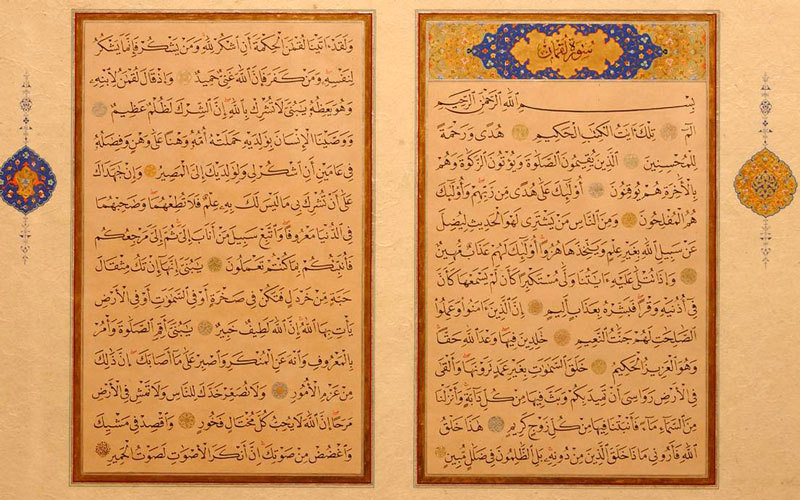 سُورَةُ لُقْمَان
بِسْمِ اللهِ الرَّحْمٰنِ الرَّحِيمِ
الٓمٓ تِلْكَ اٰيَاتُ الْكِتٰبِ الْحَكِيمِ هُدًى وَرَحْمَةً
لِلْمُحْسِنِينَ الَّذِينَ يُقِيمُونَ الصَّلٰوةَ وَيُؤْتُونَ الزَّكٰوةَ وَهُمْ
بِالْاٰخِرَةِ هُمْ يُوقِنُونَ أُولٰئِكَ عَلٰى هُدًى مِنْ رَبِّهِمْ وَأُولٰئِكَ
هُمُ الْمُفْلِحُونَ وَمِنَ النَّاسِ مَنْ يَشْتَرِى لَهْوَ الْحَدِيثِ لِيُضِلَّ
عَنْ سَبِيلِ اللهِ بِغَيْرِ عِلْمٍ وَيَتَّخِذَهَا هُزُوًا أُولٰئِكَ لَهُمْ عَذَابٌ مُهِينٌ
وَإِذَا تُتْلٰى عَلَيْهِ اٰيَاتُنَا وَلّٰى مُسْتَكْبِرًا كَأَنْ لَمْ يَسْمَعْهَا كَأَنَّ
فِى أُذُنَيْهِ وَقْرًا فَبَشِّرْهُ بِعَذَابٍ أَلِيمٍ إِنَّ الَّذِينَ اٰمَنُوا وَعَمِلُوا
الصَّالِحَاتِ لَهُمْ جَنَّاتُ النَّعِيمِ خَالِدِينَ فِيهَا وَعْدَ اللهِ حَقًّا
وَهُوَ الْعَزِيزُ الْحَكِيمُ خَلَقَ السَّمٰوَاتِ بِغَيْرِ عَمَدٍ تَرَوْنَهَا وَأَلْقٰى
فِى الْأَرْضِ رَوَاسِىَ أَنْ تَمِيدَ بِكُمْ وَبَثَّ فِيهَا مِنْ كُلِّ دَابَّةٍ وَأَنْزَلْنَا
مِنَ السَّمَاءِ مَاءً فَأَنْبَتْنَا فِيهَا مِنْ كُلِّ زَوْجٍ كَرِيمٍ هٰذَا خَلْقُ
اللهِ فَأَرُونِى مَاذَا خَلَقَ الَّذِينَ مِنْ دُونِهِ بَلِ الظَّالِمُونَ فِى ضَلَالٍ مُبِينٍ
وَلَقَدْ اٰتَيْنَا لُقْمٰنَ الْحِكْمَةَ أَنِ اشْكُرْ لِلّٰهِ وَمَنْ يَشْكُرْ فَإِنَّمَا يَشْكُرُ
لِنَفْسِهِ وَمَنْ كَفَرَ فَإِنَّ اللهَ غَنِىٌّ حَمِيدٌ وَإِذْ قَالَ لُقْمٰنُ لِابْنِهِ
وَهُوَ يَعِظُهُ يٰبُنَىَّ لَا تُشْرِكْ بِاللهِ إِنَّ الشِّرْكَ لَظُلْمٌ عَظِيمٌ
وَوَصَّيْنَا الْإِنْسَانَ بِوَالِدَيْهِ حَمَلَتْهُ أُمُّهُ وَهْنًا عَلٰى وَهْنٍ وَفِصَالُهُ
فِى عَامَيْنِ أَنِ اشْكُرْ لِى وَلِوَالِدَيْكَ إِلَىَّ الْمَصِيرُ وَإِنْ جَاهَدَاكَ
عَلٰى أَنْ تُشْرِكَ بِى مَا لَيْسَ لَكَ بِهِ عِلْمٌ فَلَا تُطِعْهُمَا وَصَاحِبْهُمَا
فِى الدُّنْيَا مَعْرُوفًا وَاتَّبِعْ سَبِيلَ مَنْ أَنَابَ إِلَىَّ ثُمَّ إِلَىَّ مَرْجِعُكُمْ
فَأُنَبِّئُكُمْ بِمَا كُنْتُمْ تَعْمَلُونَ يٰبُنَىَّ إِنَّهَا إِنْ تَكُ مِثْقَالَ
حَبَّةٍ مِنْ خَرْدَلٍ فَتَكُنْ فِى صَخْرَةٍ أَوْ فِى السَّمٰوَاتِ أَوْ فِى الْأَرْضِ
يَأْتِ بِهَا اللهُ إِنَّ اللهَ لَطِيفٌ خَبِيرٌ يٰبُنَىَّ أَقِمِ الصَّلٰوةَ وَأْمُرْ
بِالْمَعْرُوفِ وَانْهَ عَنِ الْمُنْكَرِ وَاصْبِرْ عَلٰى مَا أَصَابَكَ إِنَّ ذٰلِكَ
مِنْ عَزْمِ الْأُمُورِ وَلَا تُصَعِّرْ خَدَّكَ لِلنَّاسِ وَلَا تَمْشِ فِى الْأَرْضِ
مَرَحًا إِنَّ اللهَ لَا يُحِبُّ كُلَّ مُخْتَالٍ فَخُورٍ وَاقْصِدْ فِى مَشْيِكَ
وَاغْضُضْ مِنْ صَوْتِكَ إِنَّ أَنْكَرَ الْأَصْوَاتِ لَصَوْتُ الْحَمِيرِ